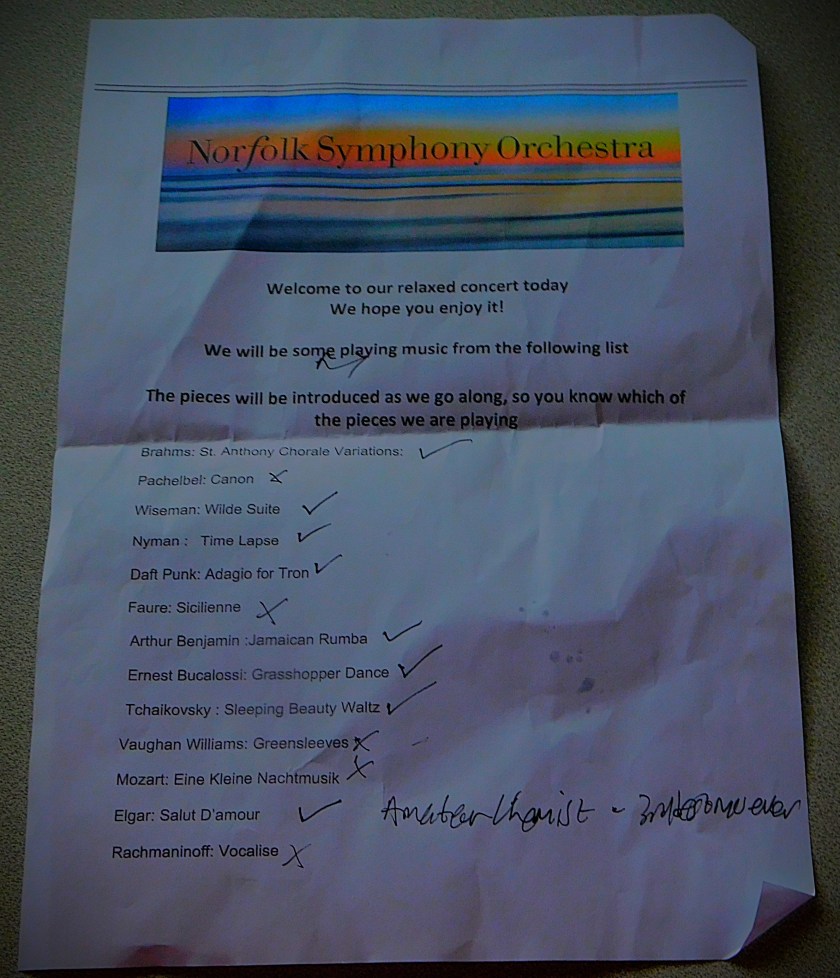 Norfolk Symphony Orchestra
Welcome to our relaxed concert today
We hope you enjoy it!
We will be some playing music from the following list
The pieces will be introduced as we go along, so you know which of
the pieces we are playing
Brahms: St. Anthony Chorale Variations:
Pachelbel: Canon
Wiseman: Wilde Suite
Nyman : Time Lapse
Daft Punk: Adagio for Tron
Faure: Sicilienne
Arthur Benjamin :Jamaican Rumba
Ernest Bucalossi: Grasshopper Dance
Tchaikovsky : Sleeping Beauty Waltz
Vaughan Williams: Greensleeves
Mozart: Eine Kleine Nachtmusik
Elgar: Salut D'amour
Rachmaninoff: Vocalise